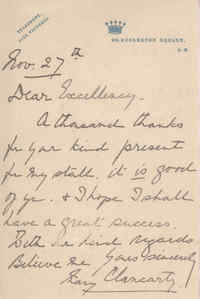 TELEGRAMS,
ECCLESTON SQUARE,
S.W.
Nov. 27th
Dear Excellency.
A thousand thanks
for your kind present
for my stall. it is good
of you. & I hope I shall
have a great success.
With kind regards
Believe me Yours sincerely
Mary Clancarty